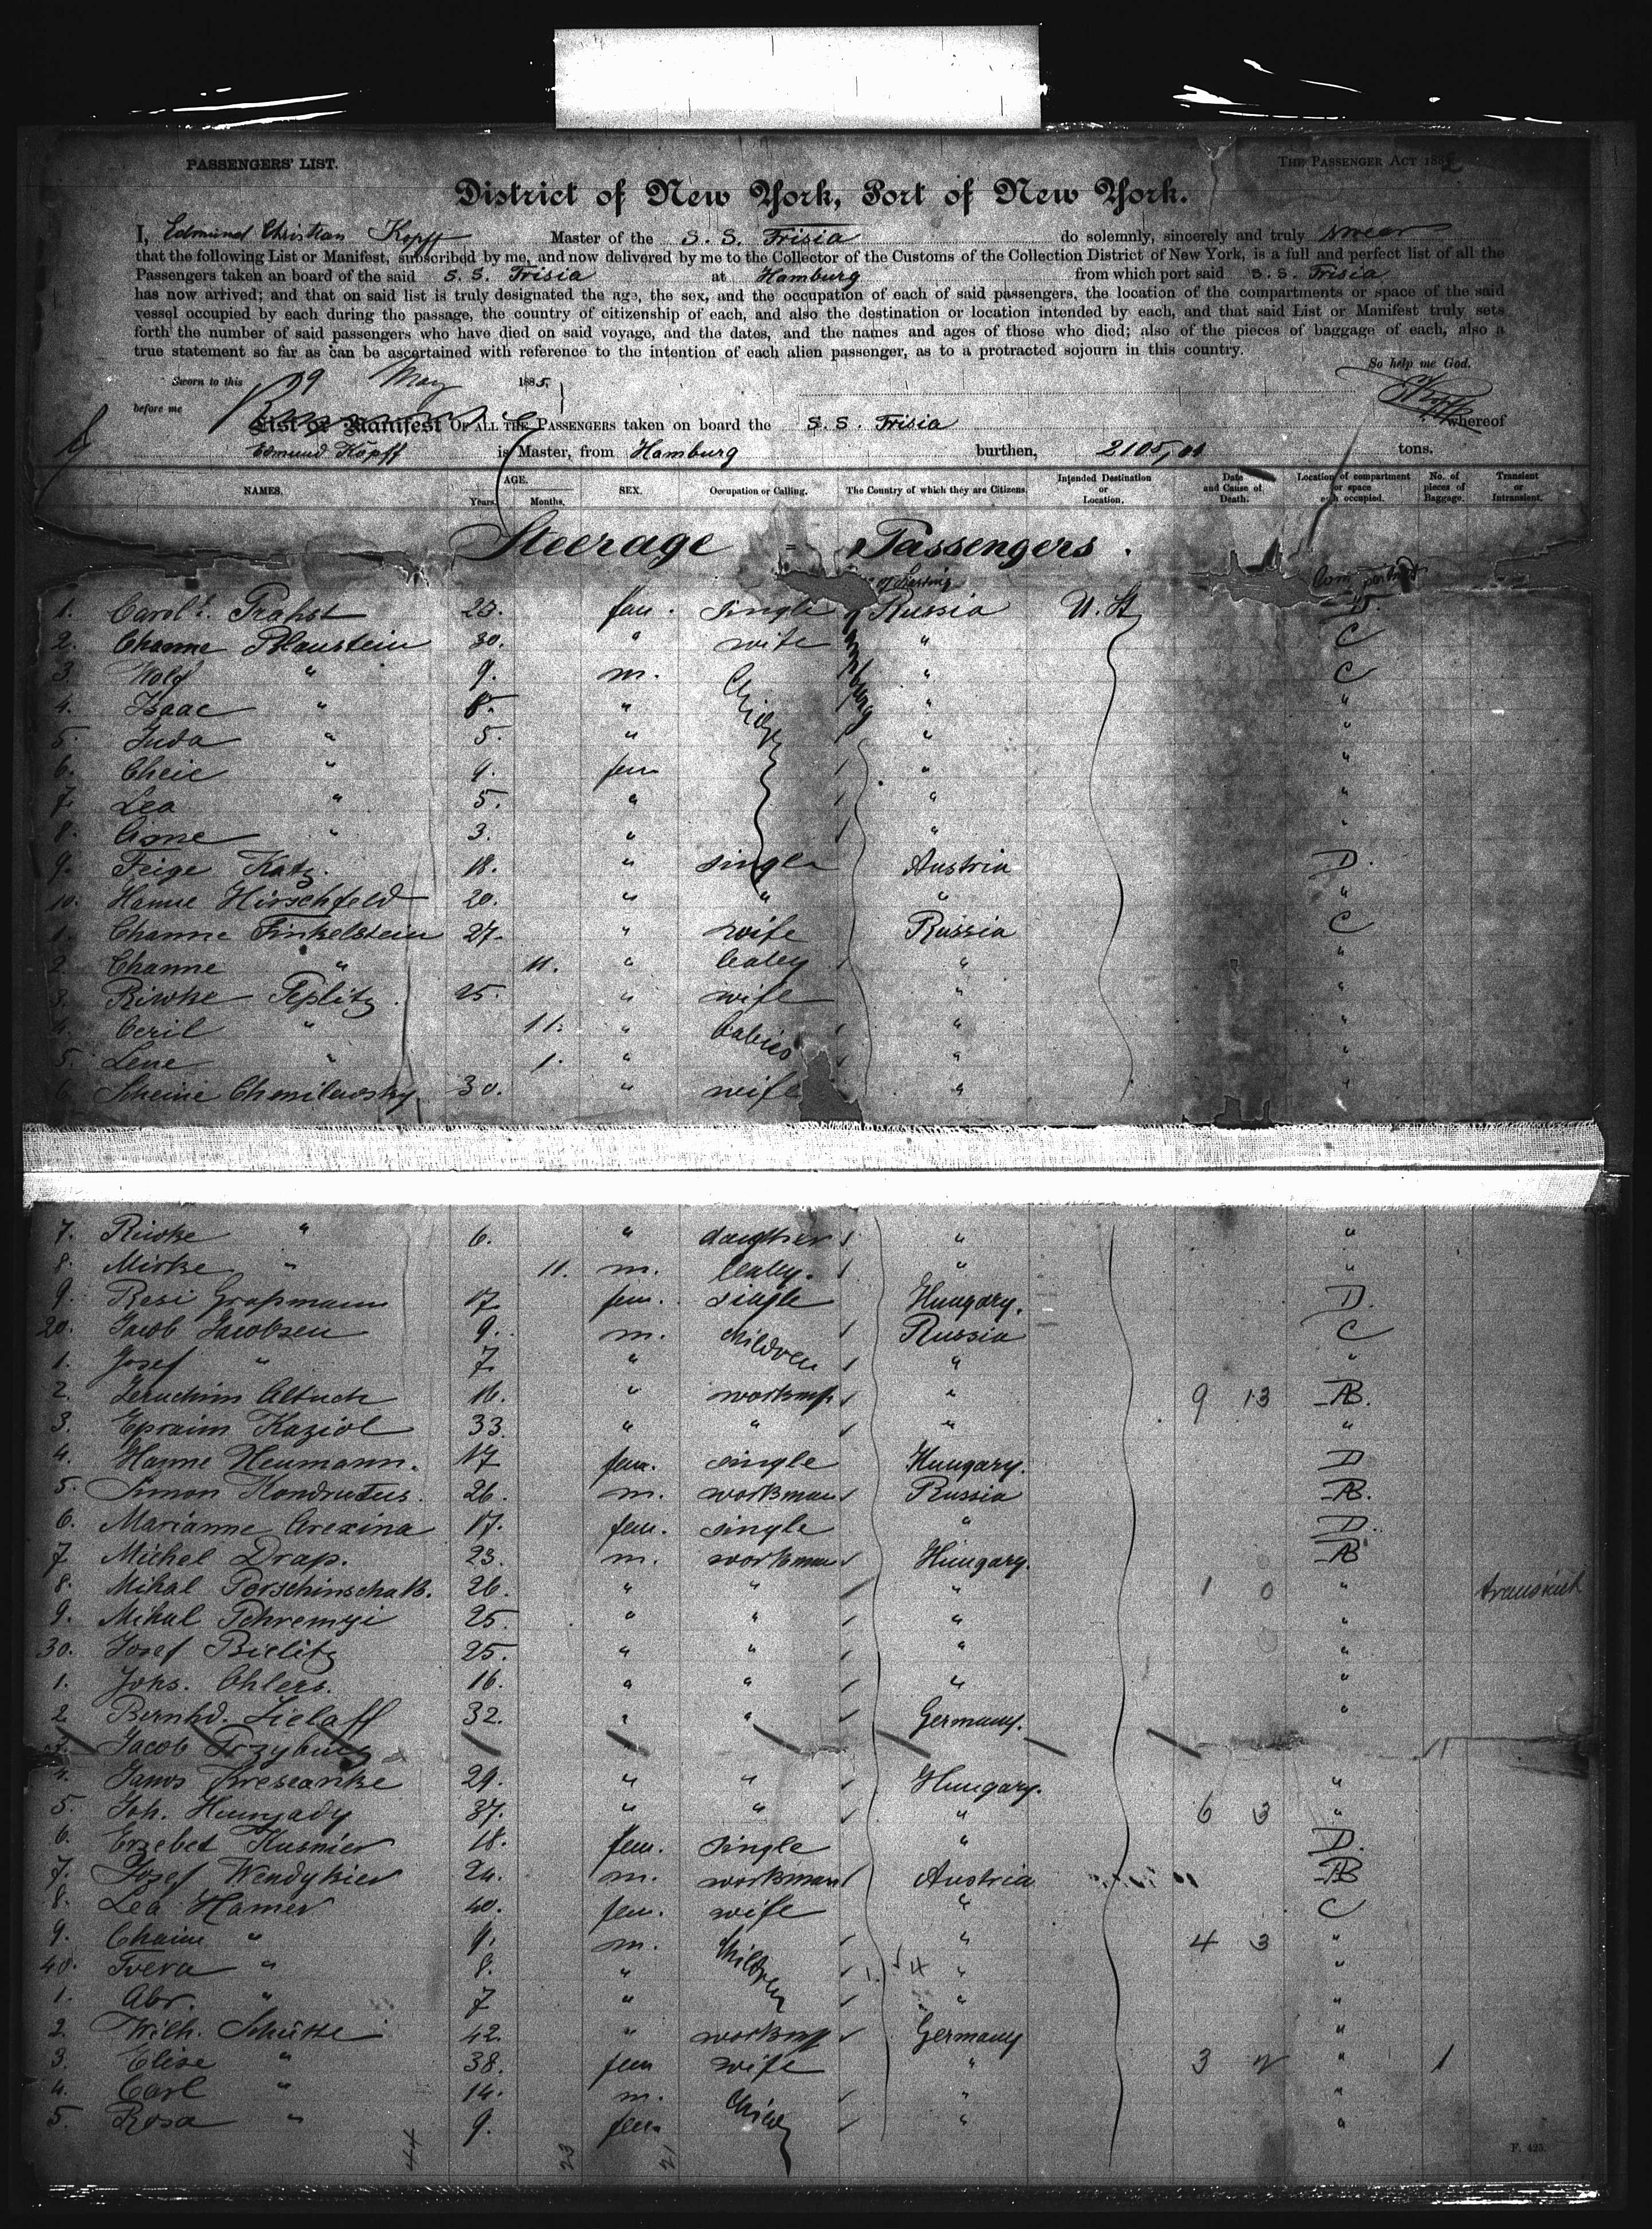 PASSENGERS' LIST. THE PASSENGER ACT 1882
District of New York, Port of New York.
I, Edmund Christian Kopff Master of the S. S. Frisia do solemnly, sincerely and truly swear
that the following List or Manifest, subscribed by me, and now delivered by me to the Collector of the Customs of the Collection District of New York, is a full and perfect list of all the
Passengers taken an board of the said S. S. Frisia at Hamburg from which port said S. S. Frisia
has now arrived; and that on said list is truly designated the age, the sex, and the occupation of each of said passengers, the location of the compartments or space of the said
vessel occupied by each during the passage, the country of citizenship of each, and also the destination or location intended by each, and that said List or Manifest truly sets
forth the number of said passengers who have died on said voyage, and the dates, and the names and ages of those who died; also of the pieces of baggage of each, also a
true statement so far as can be ascertained with reference to the intention of each alien passenger, as to a protracted sojourn in this country.
So help me God.
Sworn to this 19 May 1885
before me
List or Manifest OF ALL THE PASSENGERS taken on board the S. S. Frisia whereof
Edmund Kopff is Master, from Hamburg burthen, 2105,00 tons.
NAMES. AGE. Years. Months. SEX. Occupation or Calling. The Country of which they are Citizens. Intended Destination or Location. Date and Cause of Death. Location of compartment or space each occupied. No. of pieces of Baggage. Transient or Intransient.
Steerage = Passengers.
1. Carol. Prahst 23. fem. single Russia U. St D.
2. Channe Blaustein 30. " wife " C
3. Wolf " 9. m. Children " C
4. Isaac " 8. " " "
5. Juda " 5. " " "
6. Cheie " 4. fem " "
7. Lea " 5. " " "
8. " 3. " " "
9. Feige Katz. 18. " single Austria D.
10. Hanne Hirschfeld 20. " " " "
1. Channe Finkelstein 27. " wife Russia C
2. Channe " 11. " baby " "
3. Riwke Teplitz. 25. " wife " "
4. Ceril " 11. " babies " "
5. Lene " 1. " " "
6. Scheine Chmilewsky. 30. " wife " "
7. Riwke " 6. " daughter " "
8. Mirke " 11. m. baby. " "
9. Resi Grossmann 17 fem. single Hungary. D.
20. Jacob Jacobsen 9. m. children Russia C
1. Josef " 7 " " "
2. Jeruchim Altuch 16. " workmn " 9 13 AB.
3. Epraim Kaziol 33. " " " "
4. Hanne Neumann. 17 fem. single Hungary. D
5. Simon Kondrutus. 26. m. workman Russia AB.
6. Marianne 17. fem. single " D.
7 Michel Drap. 23. m. workman Hungary. AB
8. Mihal Porschinschak. 26. " " " 1 0 " transient
9. Mihal 25. " " " "
30. Josef Bielitz 25. " " " "
1. Johs. Ohlers. 16. " " " "
2 Bernhd. Zielaff 32. " " Germany. "
3. Jacob Przyburg
4. Janos 29. " " Hungary. "
5. Joh. Hunyady 37. " " " 6 3 "
6. Erzebet Kusnier 18. fem. single " D.
7. Josef Wendykier 24. m. workman Austria AB
8. Lea Hamer 40. fem. wife " C
9. Chaim " 9. m. children " 4 3 "
40. " 8. " " "
1. Abr. " 7 " " "
2. Wilh. Schütte 42. " workmn Germany "
3. Elise " 38. fem wife " 3 2 " 1
4. Carl " 14. m. childr " "
5. Rosa " 9. fem. " "
44 23 21
F. 425.